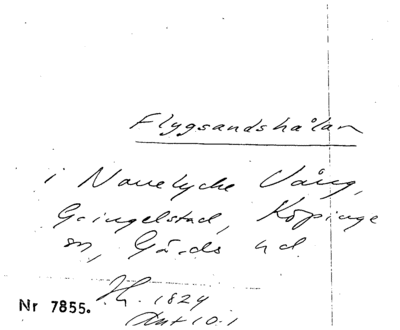 Flygsandshålan
i Navelycke Vång,
Gringelstad, Köpinge
sn, Gärds hd
H. 1824
Akt 10.1
Nr 7855.